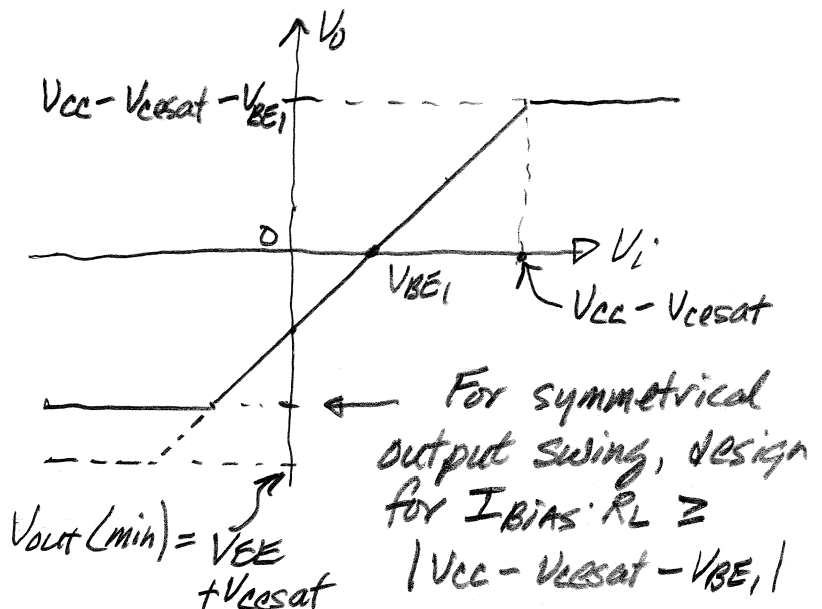 Vo
Vcc - Vcesat - VBE1
0
Vi
VBE1
Vcc - Vcesat
For symmetrical
output swing, design
for IBIAS·RL ≥
|Vcc - Vcesat - VBE1|
Vout(min) = VEE
+Vcesat